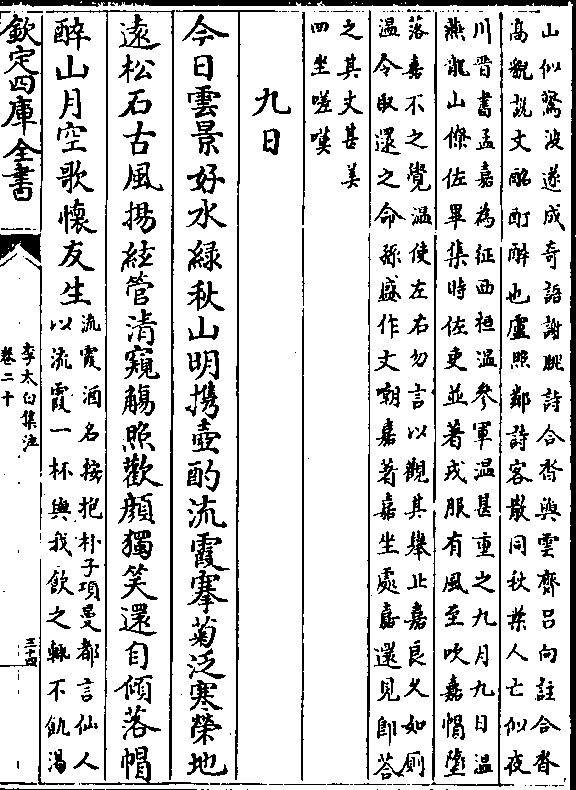 山似驚波遂成奇語謝脁詩合沓與雲齊呂向註合沓
高貌説文酩酊醉也盧照鄰詩客散同秋葉人亡似夜
川晋書孟嘉為征西桓温參軍温甚重之九月九日温
燕龍山僚佐畢集時佐吏並著戎服有風至吹嘉帽墮
落嘉不之覺温使左右勿言以觀其舉止嘉良久如厠
温令取還之命孫盛作文嘲嘉著嘉坐處嘉還見即荅
之其文甚美
四坐嗟嘆
九日
今日雲景好水緑秋山明攜壺酌流霞搴菊泛寒榮地
遠松石古風揚絃管清窺觴照歡顔獨笑還自傾落帽
醉山月空歌懷友生
流霞酒名按抱朴子項曼都言仙人
以流霞一杯與我飲之輒不飢渴
欽定四庫全書
李太白集注
卷二十
三十四